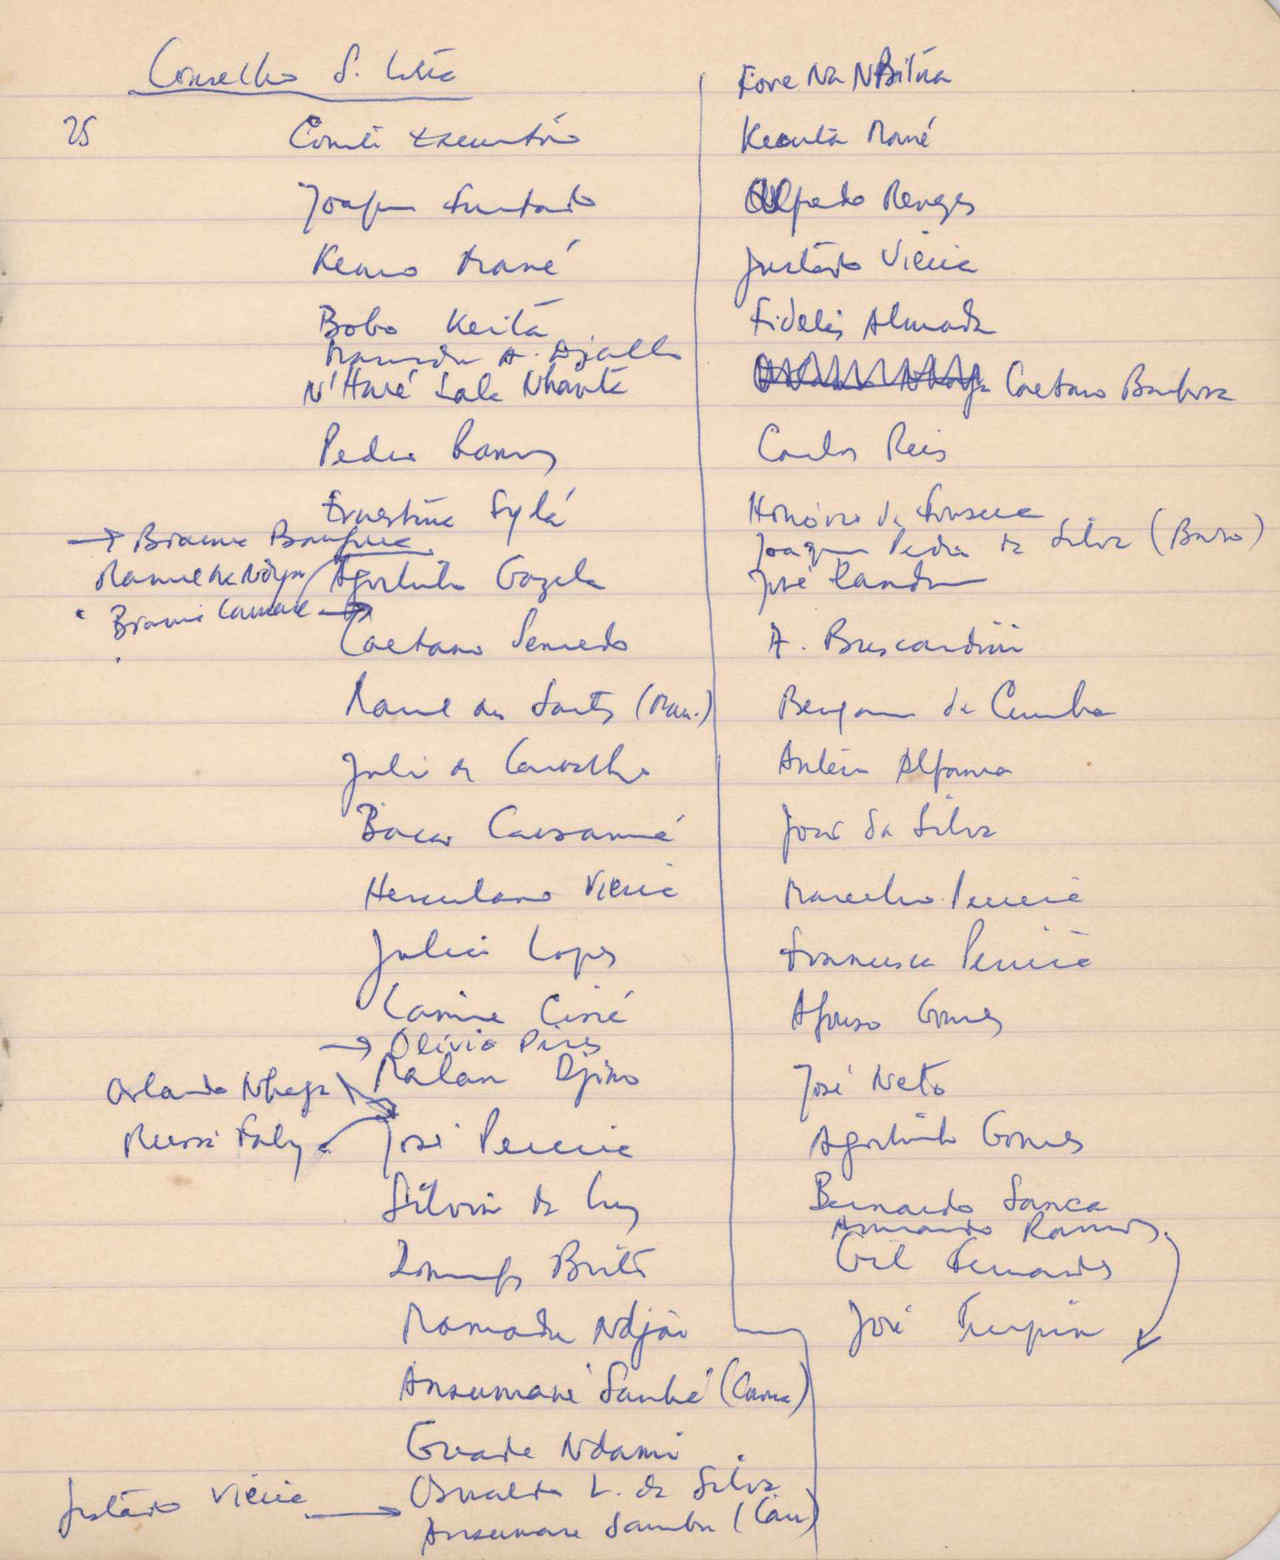 Conselho S. Luta
25
Comité Executivo
Joaquim Furtado
Kemo Mané
Bobo Keitá
Mamadu A. Djalló
N'Haré Sala Nhantã
Pedro Ramos
Ernestina Sylá
→ Braima Bangura
Manuel Ndya
Agostinho Gazela
Braima Camará →
Caetano Semedo
Manuel dos Santos (Man.)
Júlio de Carvalho
Bacar Cassamá
Herculano Vieira
Júlio Lopes
Lamine Cissé
→ Olívio Pires
Malan Djino
Orlando Nhaga
José Pereira
Mussá Faty
Silvino da Luz
Domingos Brito
Mamadu Ndjai
Ansumané Sanhá (Cama)
Guade Ndami
Justino Vieira →
Osvaldo L. da Silva
Ansumane Sambu (Cau)
Fore Na NBitna
Kecuta Mané
Alfredo Menezes
Justino Vieira
Fidelis Almada
Caetano Barbosa
Carlos Reis
Honório da Fonseca
Joaquim Pedro da Silva (Baro)
José
A. Buscardini
Benjamim da Cunha
Antero Alfama
José da Silva
Marcelino Pereira
Francisca Pereira
Afonso Gomes
José Neto
Agostinho Gomes
Bernardo Sanca
Armando Ramos
Gil Fernandes
José Turpin